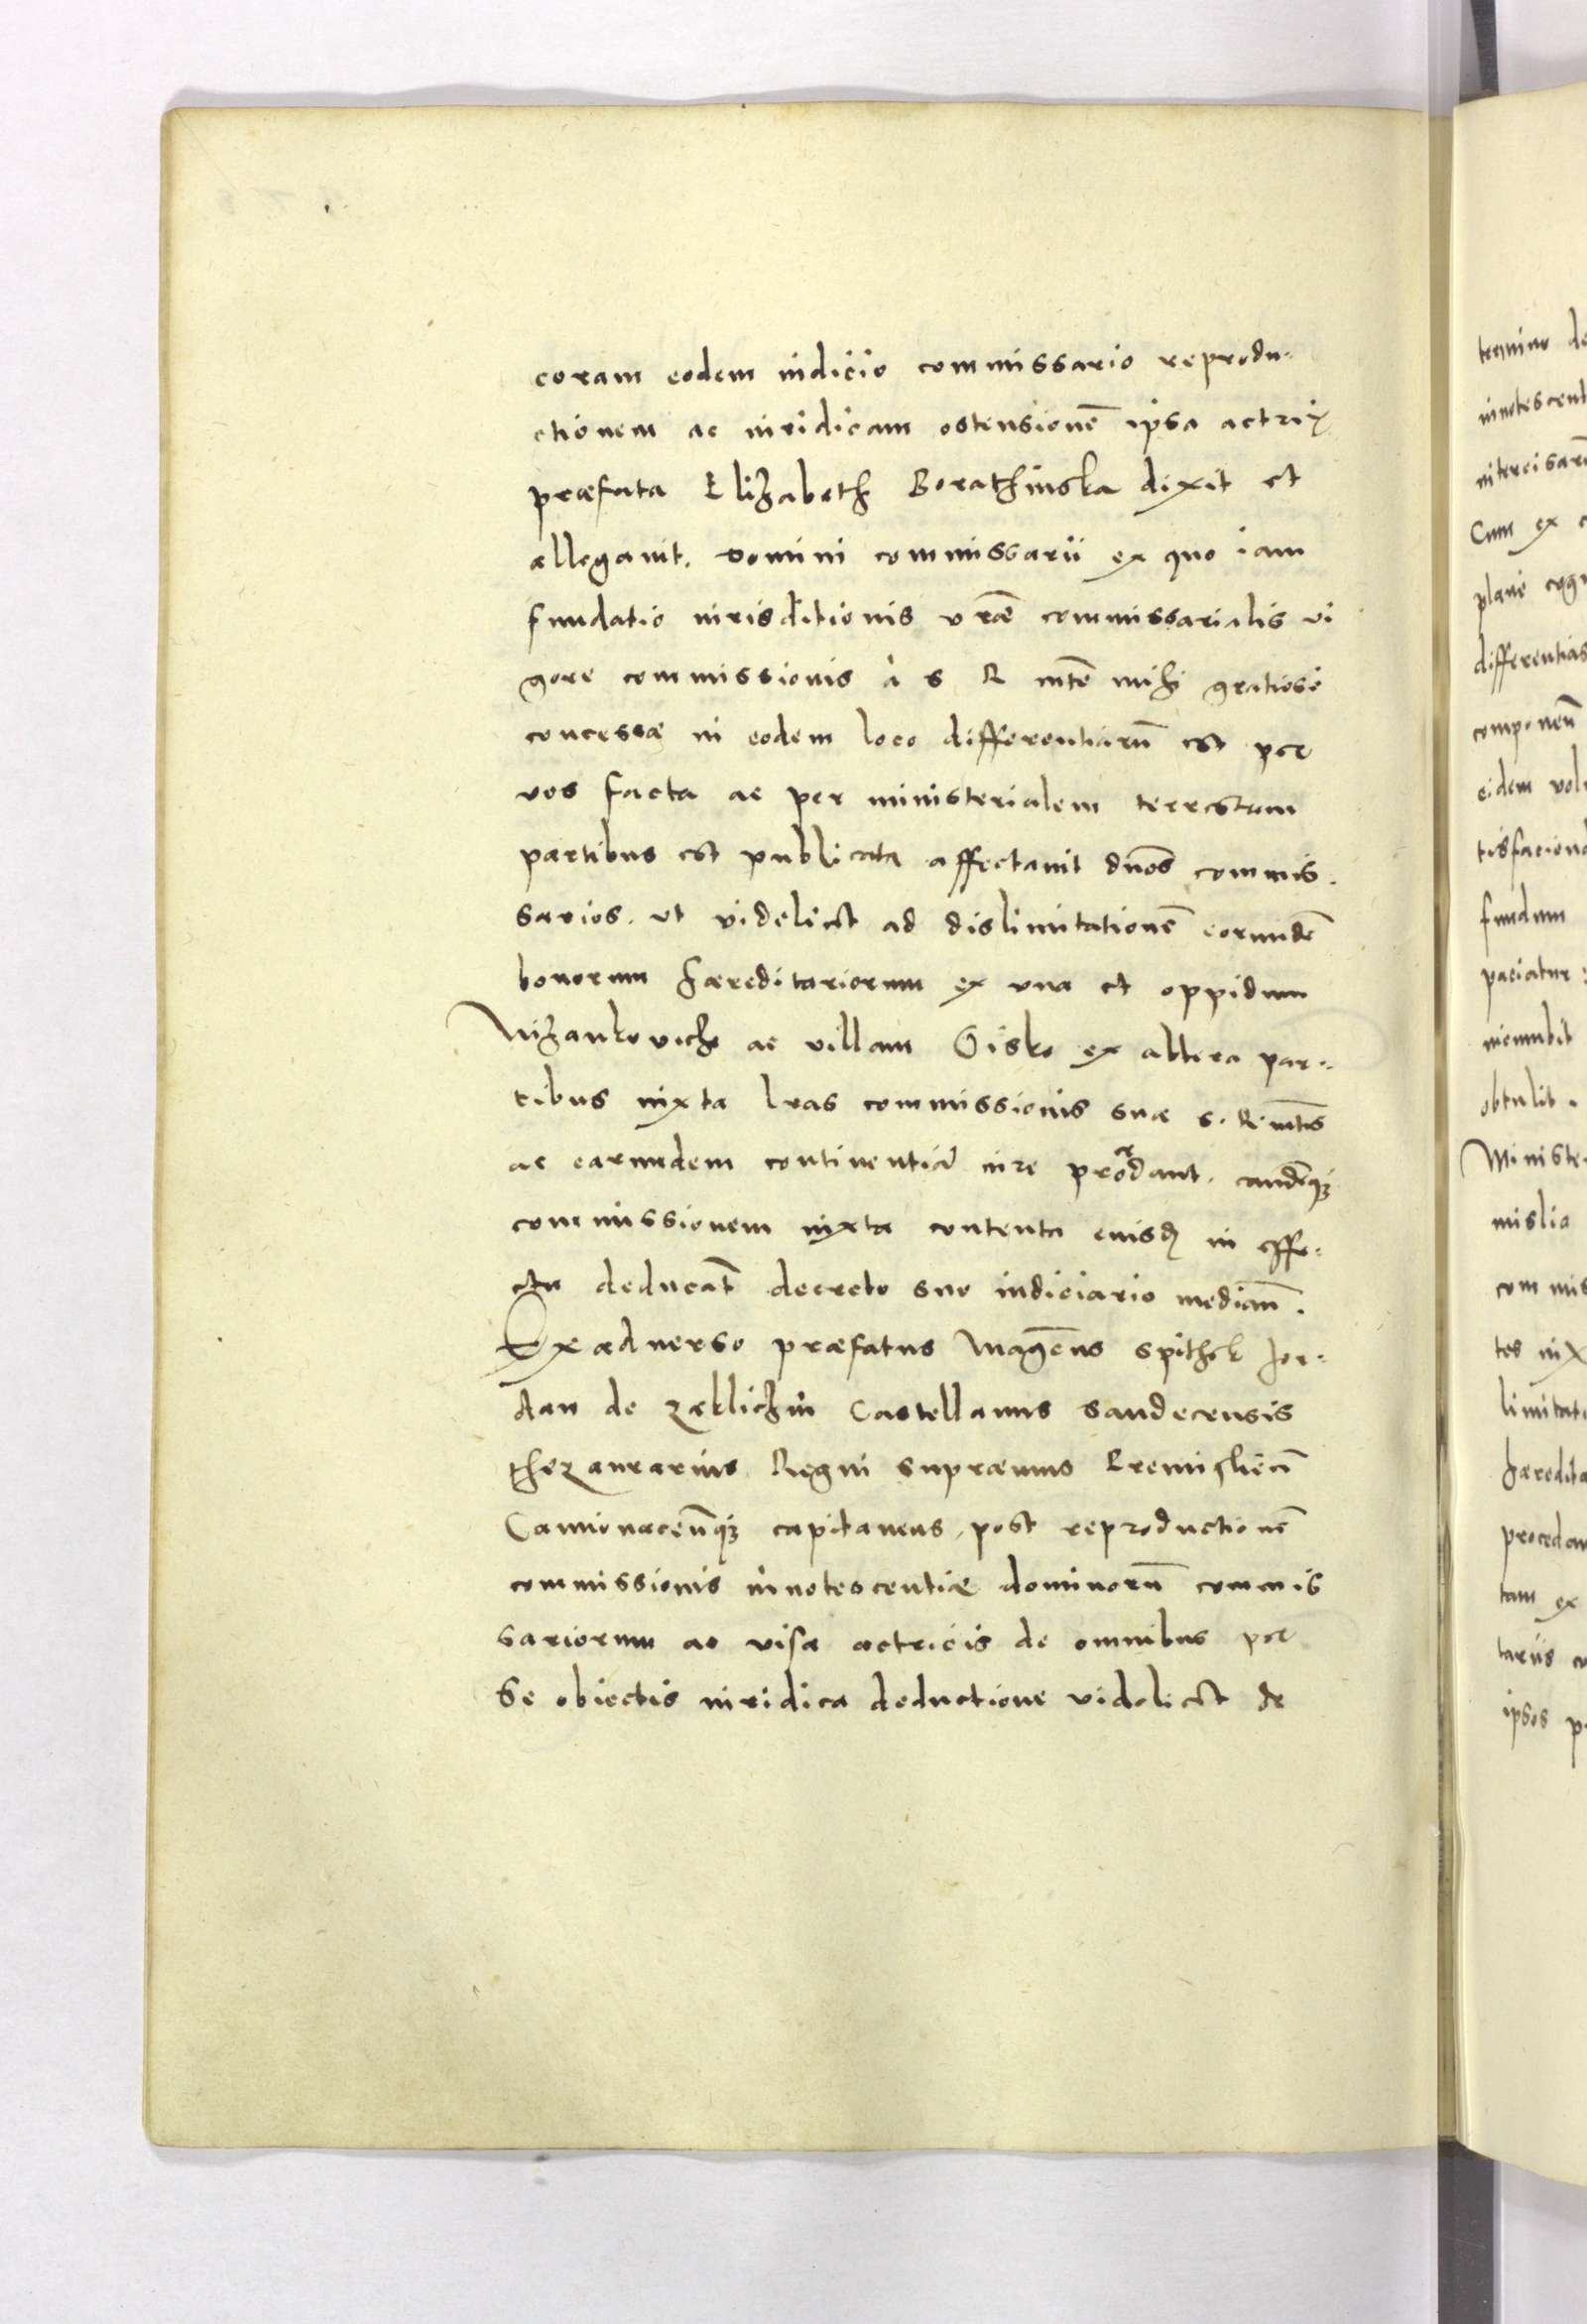 coram eodem iudicio commissario reprodu-
ctionem ac iuridicam ostensionē ipsa actrix
præfata Elizabeth Borathinska dixit et
allegauit. Domini commissarii ex quo iam
fundatio iurisditionis vr̄æ commissarialis vi
gore commissionis à S R mtē mihi gratiosè
concessæ in eodem loco differentiarū est per
vos facta ac per ministerialem terrestrem
partibus est publicata affectauit dn̄os commis-
sarios. ut videlicet ad dislimitationē eorundē
bonorum hæreditariorum ex vna et oppidum
Nizankovicze ac villam Gisko ex altera par-
tibus iuxta lras commissionis suæ S. R. mtis
ac earundem continentiā iure procedant. eandēq;
commissionem iuxta contenta eiusd in effe-
ctu deducāt decreto suo iudiciario mediāte.
Ex aduerso præfatus Magcus Spithek Jor-
dan de Zakliczin Castellanus Sandecensis
thezaurarius Regni supræmus Premisliēn
Camionacēnq; capitaneus, post reproductionē
commissionis innotescentiæ dominorū commis
sariorum ac visa actricis de omnibus per
se obiectis iuridica deductione videlicet de
termino de
innotescent
intercisarū
Cum ex
planè cog
differentias
componen
eidem vol
tisfacion
fundum
paciatur
incumbit
obtulit.
Ministe
mislia
commis
tes iux
limitat
hæredita
procedan
tam ex
tariis
ipsos p